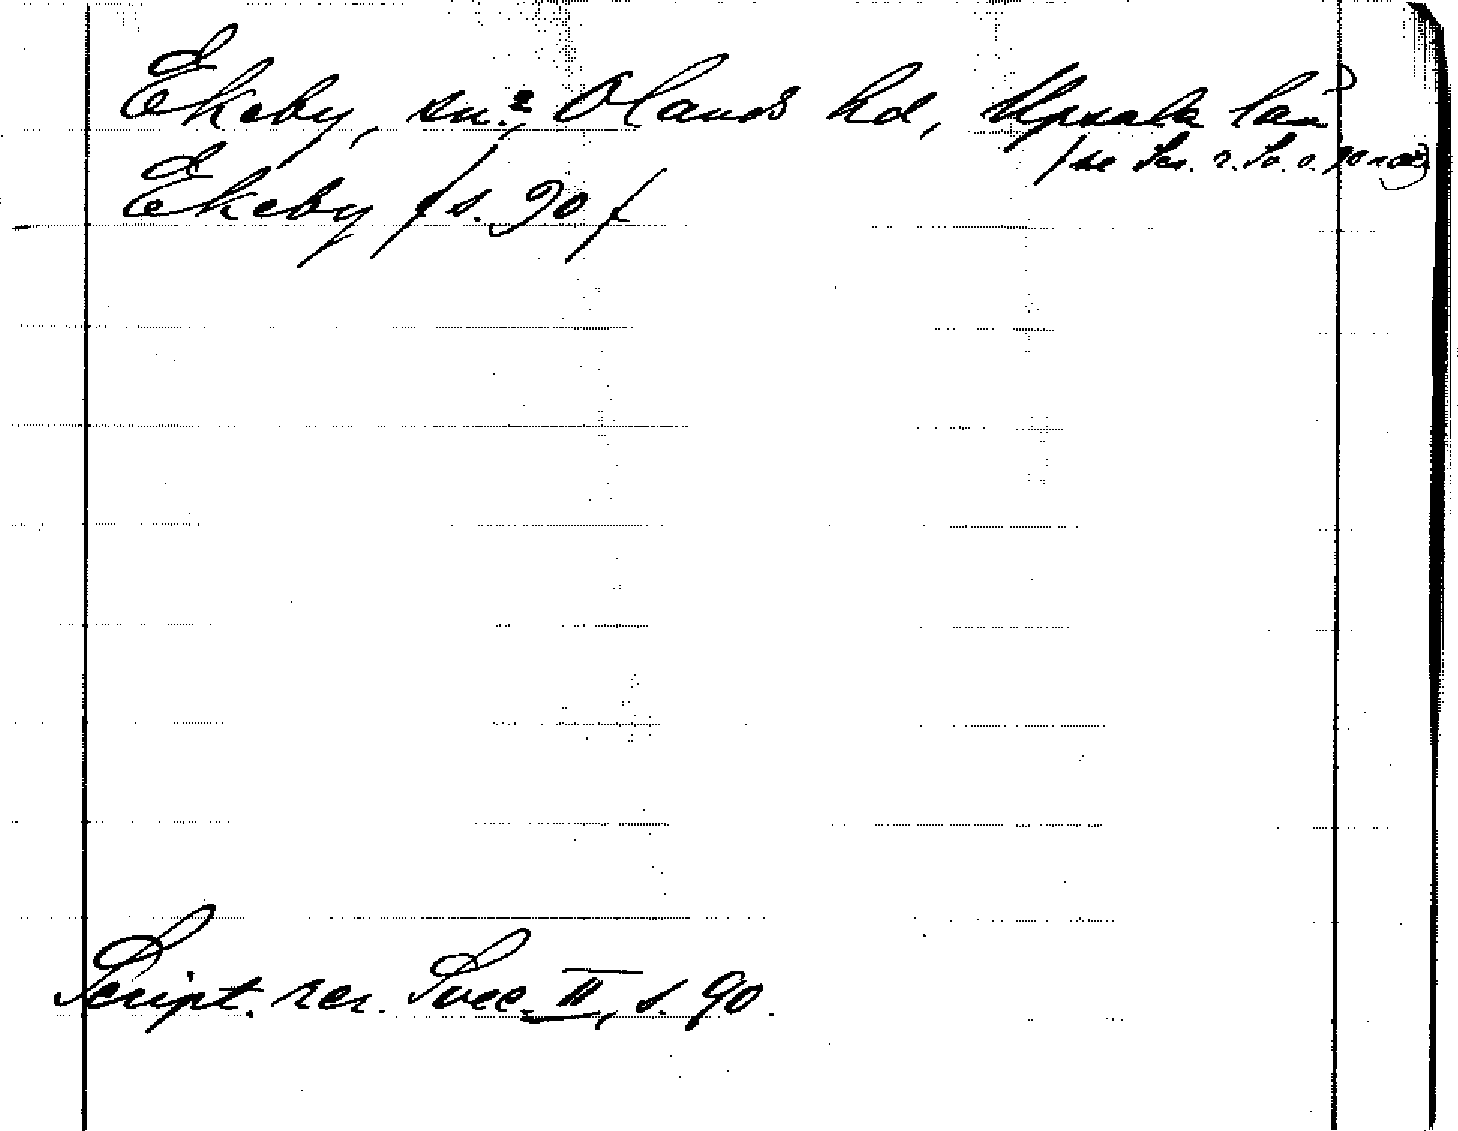 Ekeby, sn? Olands hd, Upsala län
/se Scr. r. Sv. s. 90
Ekeby / s. 90 /
Script. rer. Svec. II, s. 90.